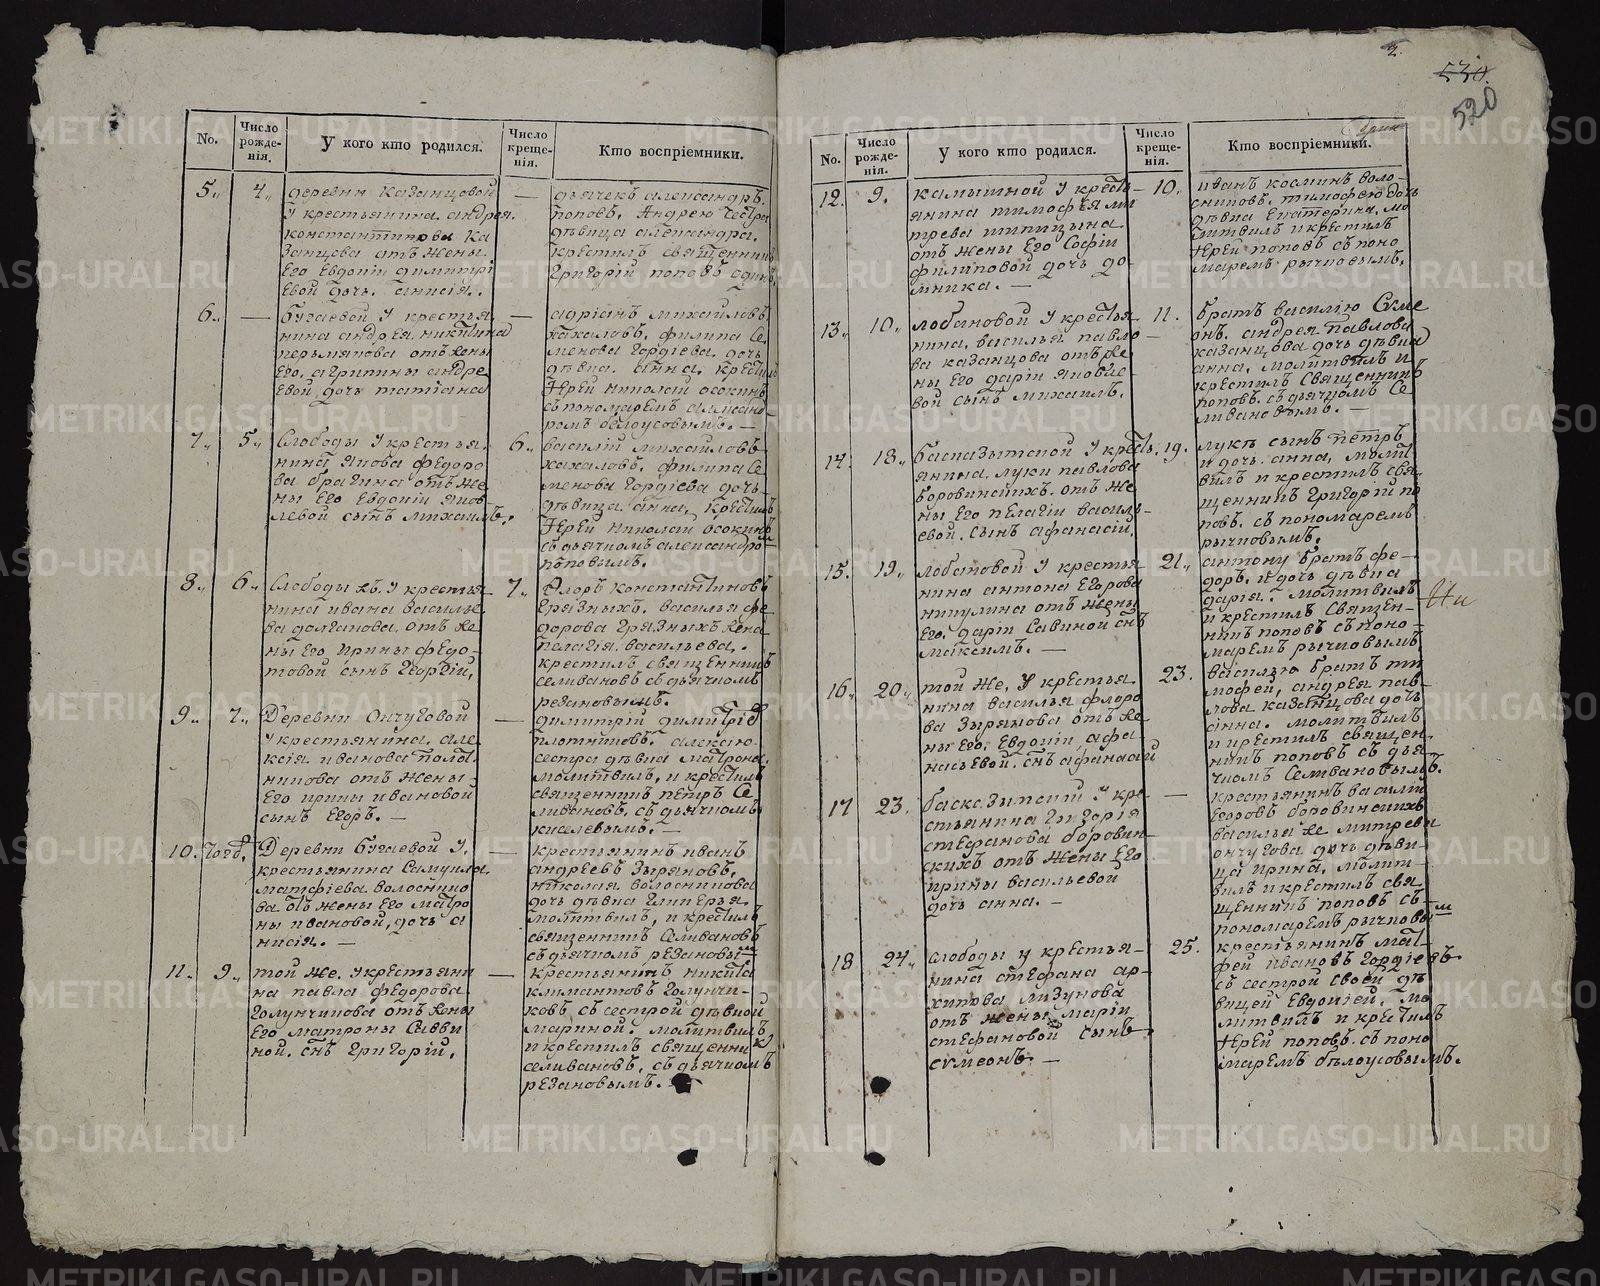 2.
530.
520
No.
Число рожде-нія.
У кого кто родился.
Число креще-нія.
Кто воспріемники.
5„
4„
деревни казанцовой
У крестьянина андрея
константинова Ка
занцова отъ жены
Его Евдокіи димитрі
Евой дочь. анисія.
—
дьячекъ александръ
поповъ, Андрею сестра
дѣвица александра.
крестилъ священникъ
григорій поповъ одинъ.
6„
—
бугаевой У крестья
нина андрея никитина
перьмякова отъ жены
Его, агрипины андре
Евой дочь татіана
—
адріанъ михайловъ
хахаловъ. филипа Се
менова гордіева. дочь
дѣвка. анна. крестилъ
Іерей николай осокинъ
съ пономаремъ александ
ромъ белоусовымъ. —
7„
5„
Слободы У крестья
нина якова федоро
ва брагина отъ же
ны Его Евдокіи яков
левой сынъ михаилъ.
6„
василій михайловъ
хахаловъ. филипа Се
менова гордіева дочь
дѣвица анна, крестилъ
Іерей николай осокинъ
съ дьячкомъ александро
поповымъ.
8„
6„
Слободы жъ. У крестья
нина ивана василье
ва долганова. отъ же
ны Его Ирины федо
товой сынъ Георгій.
7„
Флоръ константиновъ
грязныхъ. василья фе
дорова грязныхъ жена
пелагія васильева.
крестилъ священникъ
селивановъ съ дьячкомъ
резановымъ.
9„
7„
Деревни Ончуговой
У крестьянина. але
ксія. иванова плот
никова отъ жены
Его ирины ивановой
сынъ Егоръ. —
—
димитрій димитріе
плотниковъ. алексію
сестра дѣвка матрона,
молитвилъ, и крестилъ
священникъ петръ Се
ливановъ, съ дьячкомъ
киселевымъ. —
10.
Тогоже.
Деревни бугаевой У.
крестьянина Самуила
матфіева волоснико
ва отъ жены Его матро
ны ивановой, дочь а
нисія. —
—
крестьянинъ иванъ
андреевъ Зыряновъ,
николая волосникова
дочь дѣвка гликерья
молитвилъ, и крестилъ
священникъ Селивановъ
съ дьячкомъ резановы
11„
9„
той же. У крестьяни
на павла федорова
Голунчикова отъ жены
Его матроны Савви
ной. снъ григорій.
—
крестьянинъ никита
климантовъ голунчи
ковъ, съ сестрой дѣвкой
мариной. молитвилъ
и крестилъ священни
селивановъ, съ дьячкомъ
резановымъ. —
No.
Число рожде-нія.
У кого кто родился.
Число креще-нія.
Кто воспріемники.
12.
9.
камышной У кресть
янина тимофея ми
трева птицына
отъ жены Его Софіи
филиповой дочь до
мника. —
10„
иванъ косминъ воло
сниковъ. тимофею дочь
дѣвка Екатерина. мо
литвилъ и крестилъ
Іерей поповъ съ поно
маремъ рычковымъ.
13„
10„
лобановой У крестья
нина. василья павло
ва казанцова отъ же
ны Его даріи яковле
вой сынъ михаилъ.
11.
братъ василію Симе
онъ. андрея павлова
казанцова дочь дѣвка
анна. молитвилъ и
крестилъ Священникъ
поповъ. съ дьячкомъ Се
ливановымъ. —
14.
18„
басказыкской У кресть
янина. луки павлова
боровинскихъ. отъ же
ны Его пелагіи василь
евой. сынъ афанасій.
19.
лукѣ сынъ петръ
и дочь анна, молит
вилъ и крестилъ свя
щенникъ григорій по
повъ. съ пономаремъ
рычковымъ.
15.
19„
лобановой У крестья
нина антона Егорова
никулина отъ жены
Его. даріи Савиной снъ
максимъ. —
21„
антону братъ фе
доръ. и дочь дѣвка
дарія. молитвилъ
и крестилъ Священ
никъ поповъ съ поно
маремъ рычковымъ.
16„
20„
той же. У крестья
нина василья флоро
ва Зырянова отъ же
ны Его, Евдокіи, афа
насьевой. снъ афанасій
23.
василью братъ ти
мофей, андрея пав
лова казанцова дочь
анна. молитвилъ
и крестилъ священ
никъ поповъ съ дья
чкомъ Селивановымъ.
17
23.
баскозыкской У кре
стьянина григорія
стефанова боровин
скихъ отъ жены Его
ирины васильевой
дочь анна. —
—
крестьянинъ василій
Егоровъ боровинскихъ
василья же митрева
ончугова дочь дѣви
ца ирина, молит
вилъ и крестилъ свя
щенникъ поповъ съ
пономаремъ рычковы
18
24„
слободы у крестья
нина стефана ар
хипова лизунова
отъ жены маріи
стефановой сынъ
симеонъ. —
25.
крестьянинъ мат
фей ивановъ гордіевъ
съ сестрой своей дѣ
вицей Евдокіей, мо
литвилъ и крестилъ
Іерей поповъ. съ поно
маремъ бѣлоусовымъ.
METRIKI.GASO-URAL.RU